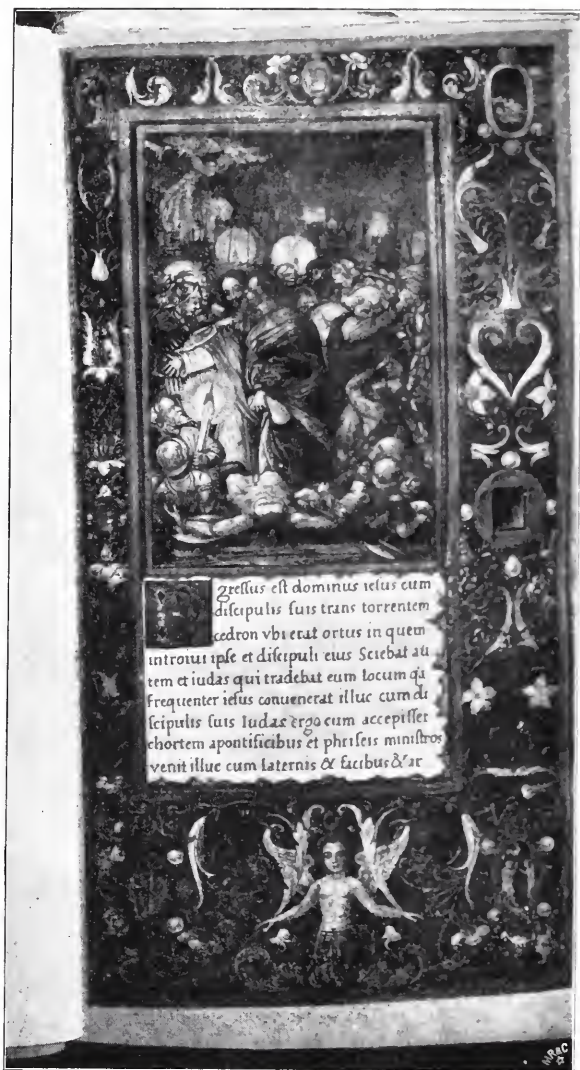 Egressus est dominus iesus cum
discipulis suis trans torrentem
cedron vbi erat ortus in quem
introiuit ipse et discipuli eius Sciebat au
tem et iudas qui tradebat eum locum qa
Frequenter iesus conuenerat illuc cum di
scipulis suis Iudas ergo cum accepisset
chortem apontificibus et phriseis ministros
venit illuc cum laternis & facibus & ar
MR&C